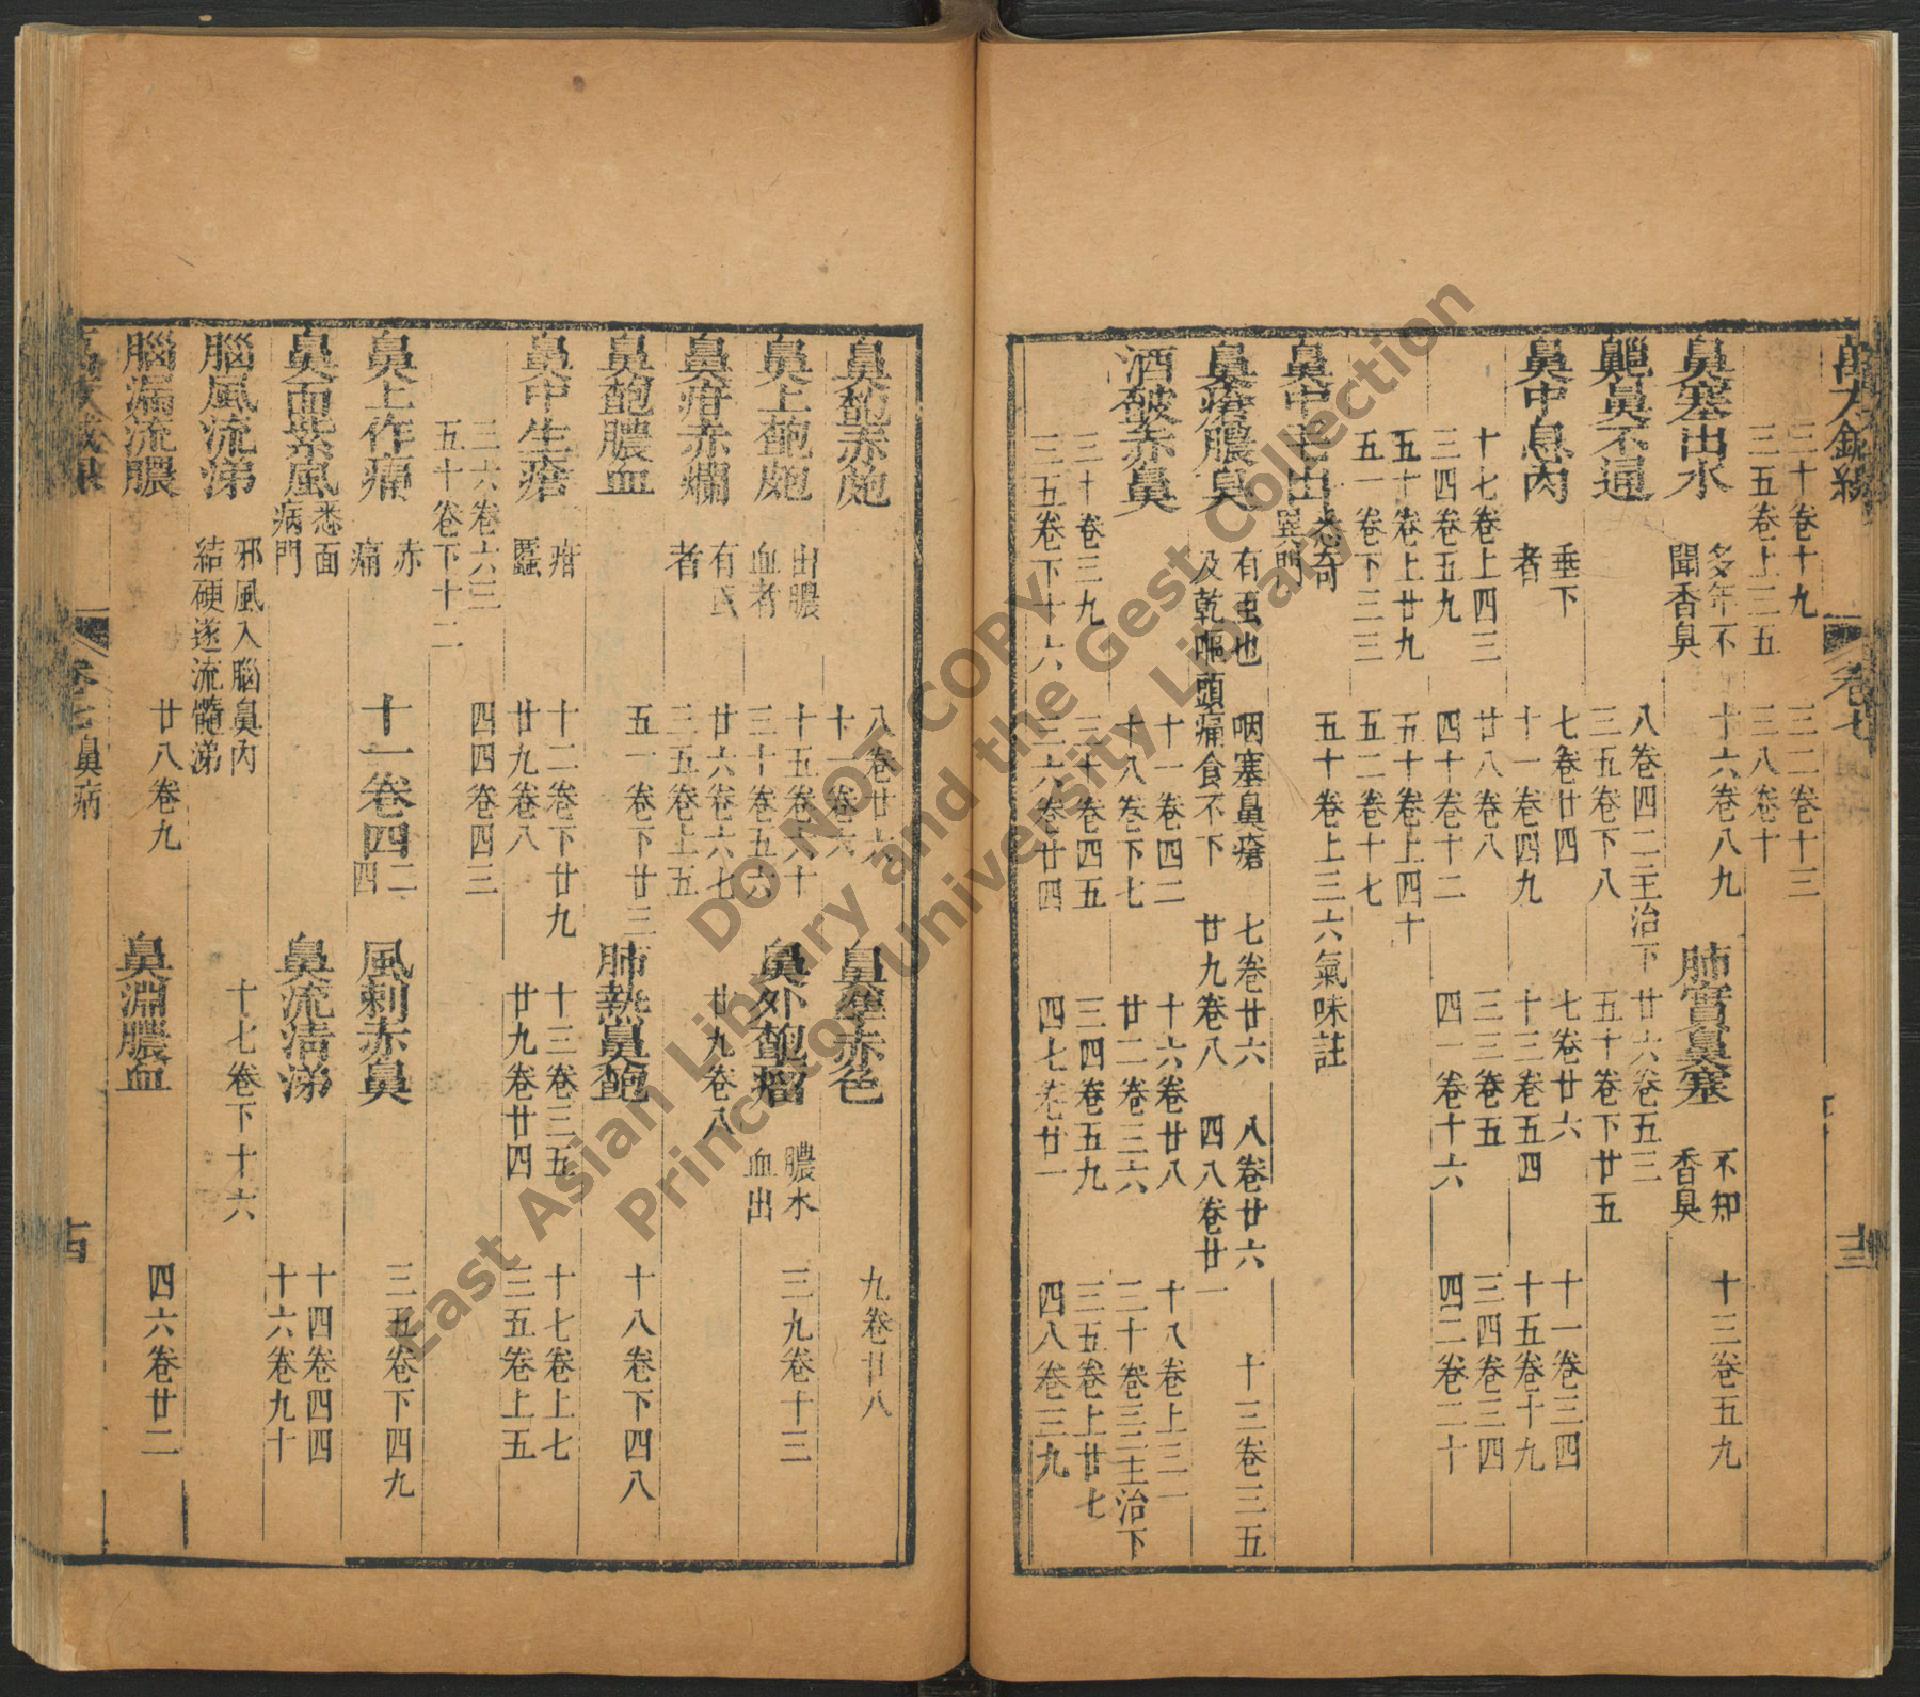 萬方鍼線 卷七 十三
三十卷十九 三二卷十三
三五卷上二五 三八卷十
鼻塞出水 多年不聞香臭 十六卷八九 肺實鼻塞 不知香臭 十三卷五九
八卷四二主治下 廿六卷五三
齆鼻不通 三五卷下八 五十卷下廿五
垂下者 七卷廿四 七卷廿六 十一卷三四
鼻中息肉 十一卷四九 十三卷五四 十五卷十九
十七卷上四三 廿八卷八 三三卷五 三四卷三四
三四卷五九 四十卷十二 四一卷十六 四二卷二十
五十卷上廿九 五十卷上四十
五一卷下三三 五二卷十七
鼻中毛出 悉奇異門 五十卷上三六氣味註
有虫也 咽塞鼻瘡 七卷廿六 八卷廿六 十三卷三五
鼻瘡膿臭 及乾嘔頭痛食不下 廿九卷八 四八卷廿一
十一卷四二 十六卷廿八 十八卷上三一
酒皶赤鼻 十八卷下七 廿二卷三六 三十卷三三主治下
三十卷三九 三十卷四五 三四卷五九 三五卷上廿七
三五卷下十六 三六卷廿四 四七卷廿一 四八卷三九
鼻皶赤皰 八卷廿六 十一卷六 鼻準赤色 九卷廿八
鼻上皶皰 出膿血者 十五卷六十 三十卷五六 鼻外皶瘤 膿水血出 三九卷十三
鼻疳赤爛 有 者 廿六卷六七 三五卷上五 廿九卷八
鼻皶膿血 五一卷下廿三 肺熱鼻皶 十八卷下四八
鼻中生瘡 疳䘌 十二卷下廿九 廿九卷八 十三卷三五 廿九卷廿四 十七卷上七 三五卷上五
三六卷六三 四四卷四三
五十卷下十二
鼻上作痛 赤痛 十一卷四二 四 風刺赤鼻 三五卷下四九
鼻面紫風 悉面病門 鼻流清涕 十四卷四四 十六卷九十
腦風流涕 邪風入腦鼻內結硬遂流髓涕 十七卷下十六
腦漏流膿 廿八卷九 鼻淵膿血 四六卷廿二
卷七 鼻病 十四
DO NOT COPY
East Asian Library and the Gest Collection
Princeton University Library